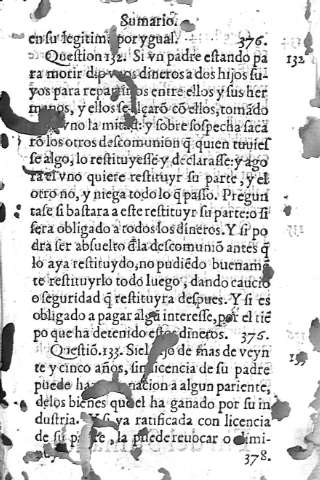 Sumario.
en su legitima por ygual. 376.
Question 132. Si vn padre estando pa 132
ra morir dio vnos dineros a dos hijos su-
yos para repartirlos entre ellos y sus her
manos, y ellos se alçarõ cõ ellos, tomãdo
vno la mitad: y sobre sospecha saca
rõ los otros descomunion q̃ quien tuuies
se algo, lo restituyesse y declarasse: y ago
ra el vno quiere restituyr su parte, y el
otro no, y niega todo lo q̃ passo. Pregun
tase si bastara a este restituyr su parte: o si
sera obligado a todos los dineros. Y si po
dra ser absuelto d̃la descomuniõ antes q̃
lo aya restituydo, no pudiẽdo buename
te restituyrlo todo luego, dando cauciõ
o seguridad q̃ restituyra despues. Y si es
obligado a pagar algũ interesse, por el tiẽ
po que ha detenido estos dineros. 376.
Questiõ. 133. Si el hijo de mas de veyn 133
te y cinco años, sin licencia de su padre
puede nacion a algun pariente,
delos bienes que el ha ganado por su in
dustria. Y si ya ratificada con licencia
de su padre, la puede reuocar o dimi-
378.